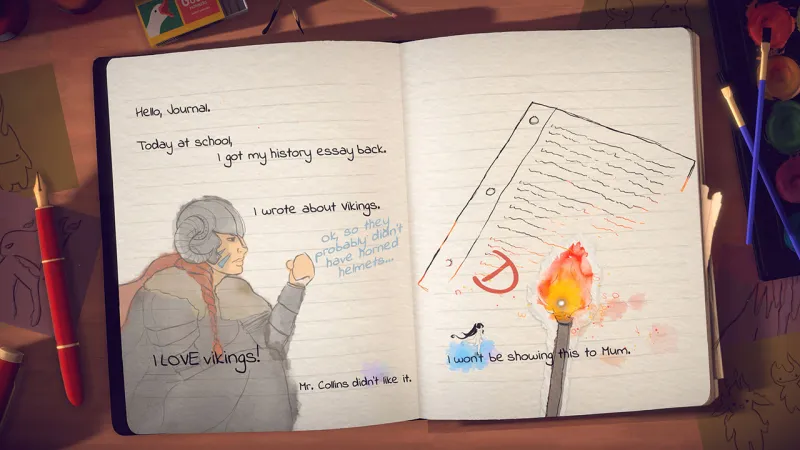 Hello, Journal.
Today at school,
I got my history essay back.
I wrote about vikings.
Ok, so they
probably didn't
have horned
helmets...
I LOVE vikings!
Mr. Collins didn't like it.
D
I won't be showing this to Mum.